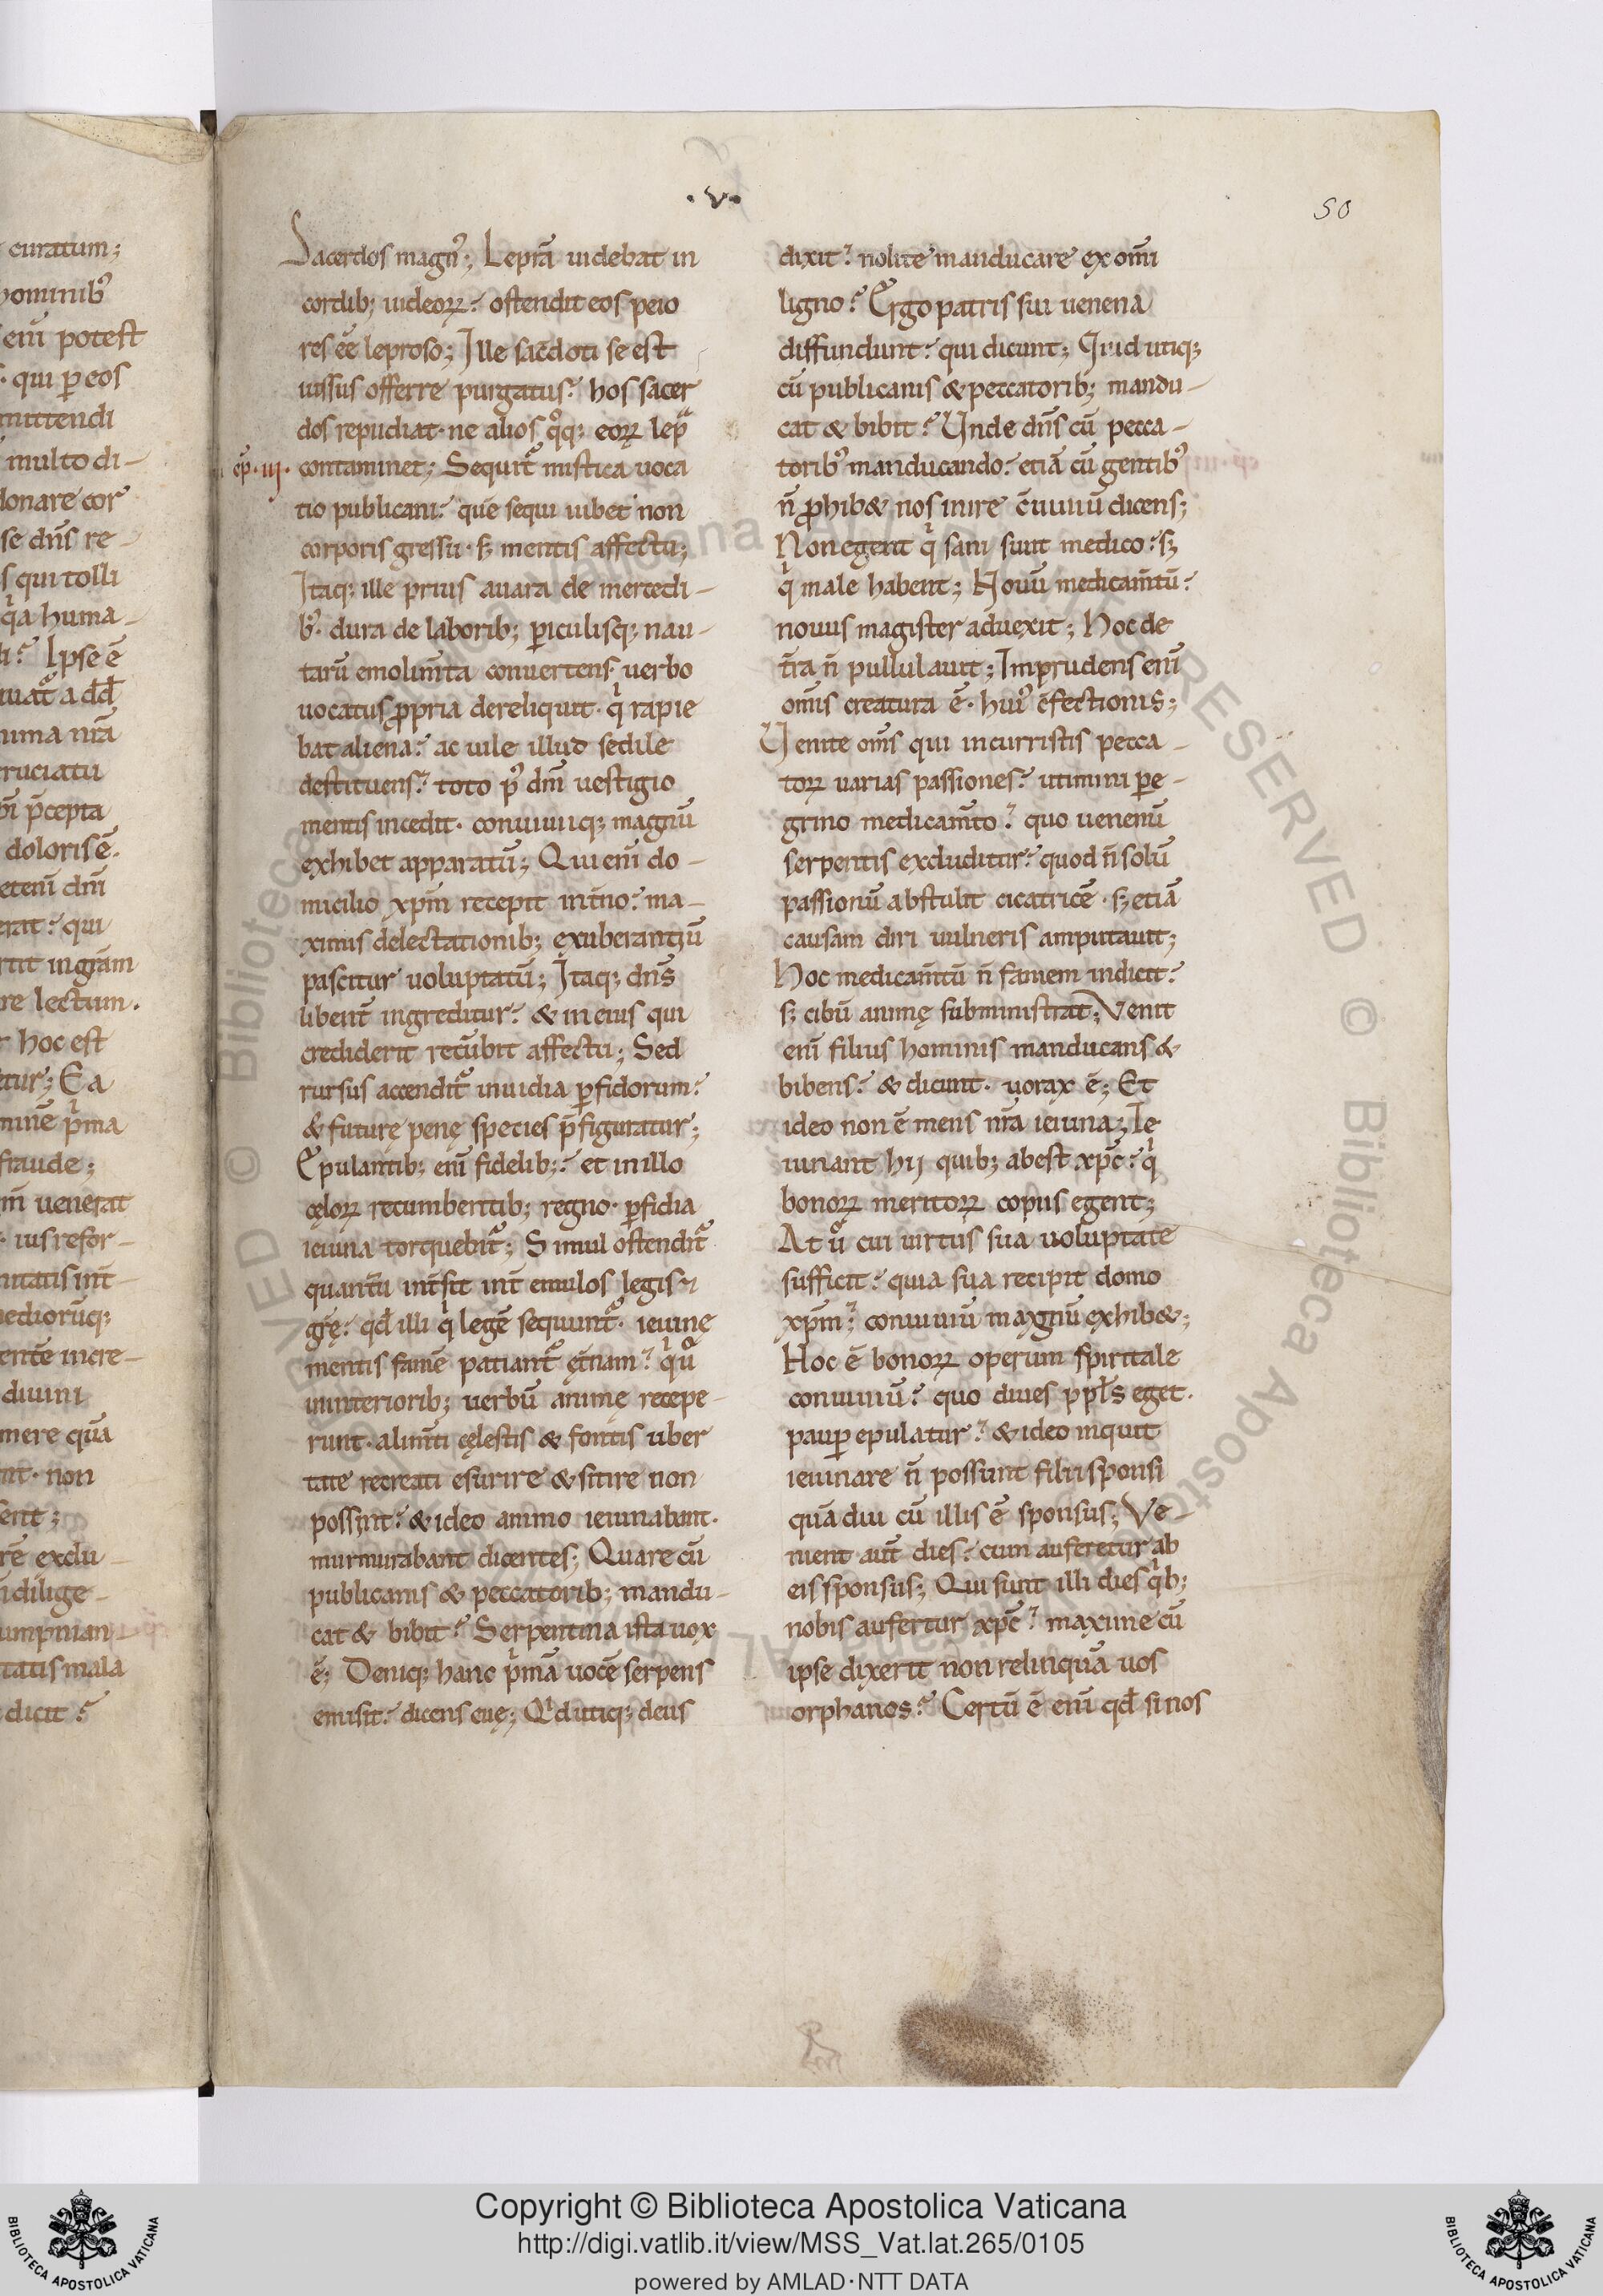 curatum;
hominib᷒
eni᷒ potest
· qui ꝑ eos
mittendi
multo di-
donare cor
se dn̄s re-
s qui tolli
qͥa huma-
Ipse ē
uma nr̄a
ruciatu
p̄cepta
doloris ē.
eteni᷒ dn̄i
erat? qui
rtit in gr̄am
re lectum.
hoc est
etur; Ea
pͥma
fraude;
uenerat
· ius refor-
mitatis int̄-
mediorūq;
entē incre-
diuini
mere quā
nt· non
erit;
rē exclu-
i dilige-
umpnian-
tatis mala
dicit?
.v.
50
Sacerdos magn᷒; Leprā uidebat in
cordib; iudeoꝝ? ostendit eos peio
res ēē leproso; Ille sac̄doti se est
iussus offerre purgatus? hos sacer
dos repudiat· ne alios qͦq; eoꝝ lepͣ
cp̄·iij·
contaminet; Sequit᷒ mistica uoca
tio publicani? quē sequi iubet non
corporis gressu· sꝫ mentis affectu;
Itaq; ille prius auara de mercedi-
b᷒· dura de laborib; ꝑiculisq; nau-
tarū emolum̄ta conuertens· uerbo
uocatus ꝓpria dereliquit· qͥ rapie
bat aliena? ac uile illud sedile
destituens? toto p᷒ dn̄m uestigio
mentis incedit· conuiuiiq; magnū
exhibet apparatū; Qui eni᷒ do-
micilio xp̄m recepit int̄no? ma-
ximis delectationib; exuberantiū
pascitur uoluptatū; Itaq; dn̄s
libent̄ ingreditur? & in eius qui
crediderit recūbit affectu; Sed
rursus accendit᷒ inuidia ꝑfidorum?
& futurę penę species p̄figuratur;
Epulantib; eni᷒ fidelib;? et in illo
cęloꝝ recumbentib; regno· ꝑfidia
ieiuna torquebit᷒; Simul ostendit᷒
quantū int̄sit int̄ emulos legis ⁊
gr̄ę? qd̄ illi qͥ legē sequunt᷒· ieiunę
mentis famē patiant᷒ ęt̄nam? qͥ uͦ
in interiorib; uerbū animę recepe-
runt· alim̄ti cęlestis & fontis uber
tate recreati esurire & sitire non
possint? & ideo animo ieiunabant·
murmurabant dicentes; Quare cū
publicanis & peccatorib; mandu-
cat & bibit? Serpentina ista uox
ē; Deniq; hanc pͥmā uocē serpens
emisit? dicens euę; Qͥd utiq; deus
dixit? nolite manducare ex omi᷒
ligno? Ergo patris sui uenena
diffundunt? qui dicunt; Quid utiq;
cū publicanis & peccatorib; mandu-
cat & bibit? Unde dn̄s cū pecca-
torib᷒ manducando? etiā cū gentib᷒
n̄ ꝓhib& nos inire c̄uiuiū dicens;
Non egent qͥ sani sunt medico? sꝫ
qͥ male habent; Nouū medicam̄tū?
nouus magister aduexit; Hoc de
t̄ra n̄ pullulauit; Imprudens eni᷒
om̄is creatura ē· hui᷒ c̄fectionis;
Venite om̄s qui incurristis pecca-
toꝝ uarias passiones? utimini ꝑe-
grino medicam̄to? quo uenenū
serpentis excluditur? quod n̄ solū
passionū abstulit cicatricē· sꝫ etiā
causam diri uulneris amputauit;
Hoc medicam̄tū n̄ famem indicit?
sꝫ cibū animę subministrat; Venit
eni᷒ filius hominis manducans &
bibens? & dicunt· uorax ē; Et
ideo non ē mens nr̄a ieiuna; Ie
iunant hij quib; abest xp̄c? qͥ
bonoꝝ meritoꝝ copiis egent;
At uͦ cui uirtus sua uoluptate
sufficit? quia sua recipit domo
xp̄m? conuiuiū maxgnū exhib&;
Hoc ē bonoꝝ operum spiritale
conuiuiū? quo diues ppl̄s eget·
pauꝑ epulatur? & ideo inquit
ieiunare n̄ possunt filii sponsi
quādiu cū illis ē sponsus; Ve-
nient aut̄ dies? cum auferetur ab
eis sponsus; Qui sunt illi dies qͥb;
nobis aufertur xp̄c? maxime cū
ipse dixerit non relinquā uos
orphanos? Certū ē eni᷒ qd̄ si nos
Copyright © Biblioteca Apostolica Vaticana
http://digi.vatlib.it/view/MSS_Vat.lat.265/0105
powered by AMLAD·NTT DATA
BIBLIOTECA APOSTOLICA VATICANA
BIBLIOTECA APOSTOLICA VATICANA